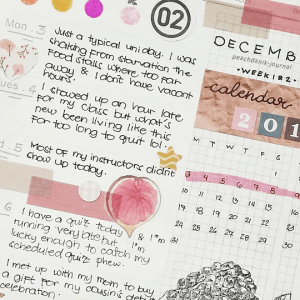 02
Mon. 3
Just a typical uni day. I was
starving from starvation the
food stalls where too far
away & I don't have vacant
hours.
ues. 4
I showed up an hour late
for my class but what's
new been living like this
for too long to quit lol.
5
Most of my instructors didn't
show up today.
6
I have a quiz today & I'm
running very late but I'm
lucky enough to catch my
scheduled quiz phew.
I met up with my mom to buy
a gift for my cousin's deb
celebration.
DECEMB
peachdanik-journal
•WEEK 1&2•
calendar
201
M T W T F S
3 4 5 6 7 8 9
10 11 12 13 14 15
17 18 19 20 21 22
24 25 26 27 28 29 30